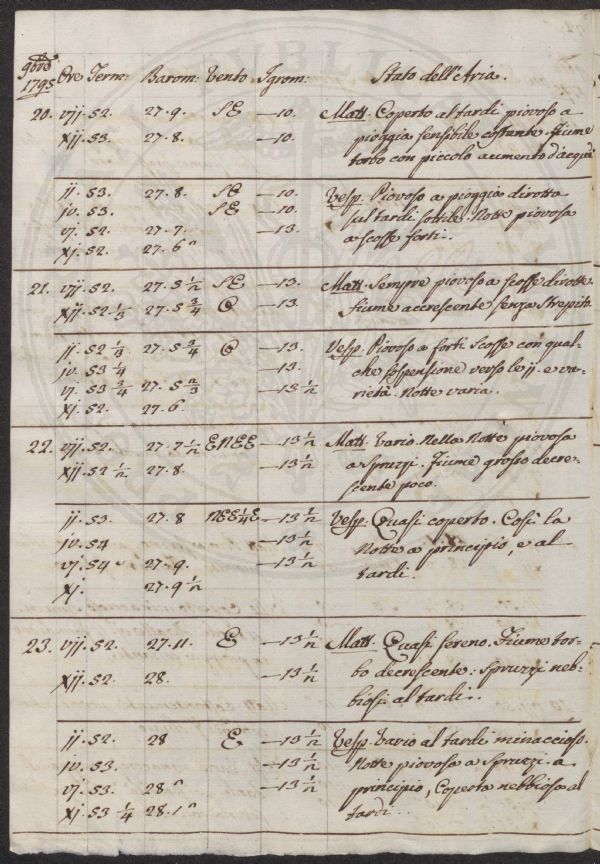 9bre
1795 Ore Term: Barom: Vento Igrom: Stato dell'Aria.
20. vij. 52. 27.9. SE —10. Matt. Coperto al tardi piovoso a
xij. 53. 27.8. —10. pioggia sensibile costante. fiume
torbo con piccolo aumento d'acqua
ij. 53. 27.8. SE —10. Vesp. Piovoso a pioggia dirotta
iv. 53. SE —10. sul tardi sottile. Notte piovosa
vj. 52. 27.7. —13. a scosse forti..
xj. 52. 27.6
21. vij. 52. 27.5 1/2 SE —13. Matt. Sempre piovoso a scosse dirotte
xij. 52. 1/3 27.5 3/4 O —13. fiume accrescente senza strepito.
ij. 52 1/3 27.5 3/4 O —13. Vesp. Piovoso a forti scosse con qual-
iv. 53 1/4 —13. che sospensione verso le ij. e va-
vj. 53 3/4 27.5 2/3 —13 1/2 rietà. Notte varia..
xj. 52. 27.6
22. vij. 52. 27.7 1/2 ENEE —13 1/2 Matt. Vario. Nella Notte piovosa
xij. 52 1/2 27.8. —13 1/2 a spruzzi. Fiume grosso decre-
scente poco.
ij. 53. 27.8 NEE 1/4 E —13 1/2 Vesp. Quasi coperto. Così la
iv. 54 —13 1/2 Notte a principio, e al
vj. 54 27.9. —13 1/2 tardi.
xj. 27.9 1/2
23. vij. 52. 27.11. E —13 1/2 Matt. Quasi sereno. Fiume tor-
xij. 52. 28. —13 1/2 bo decrescente: spruzzi neb-
biosi al tardi..
ij. 52. 28 E —13 1/2 Vesp. Vario al tardi minaccioso.
iv. 53. —13 1/2 Notte piovosa a spruzzi a
vj. 53. 28 —13 1/2 principio, Coperta nebbiosa al
xj. 53 1/4 28.1 tardi..